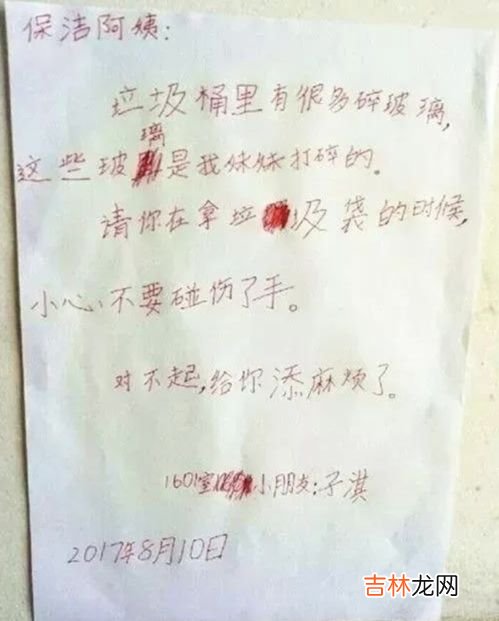 保洁阿姨:
垃圾桶里有很多碎玻璃,
这些玻璃是我妹妹打碎的。
请你在拿垃圾袋的时候,
小心、不要碰伤了手。
对不起,给你添麻烦了。
1601室小朋友:子淇
2017年8月10日
吉林龙网